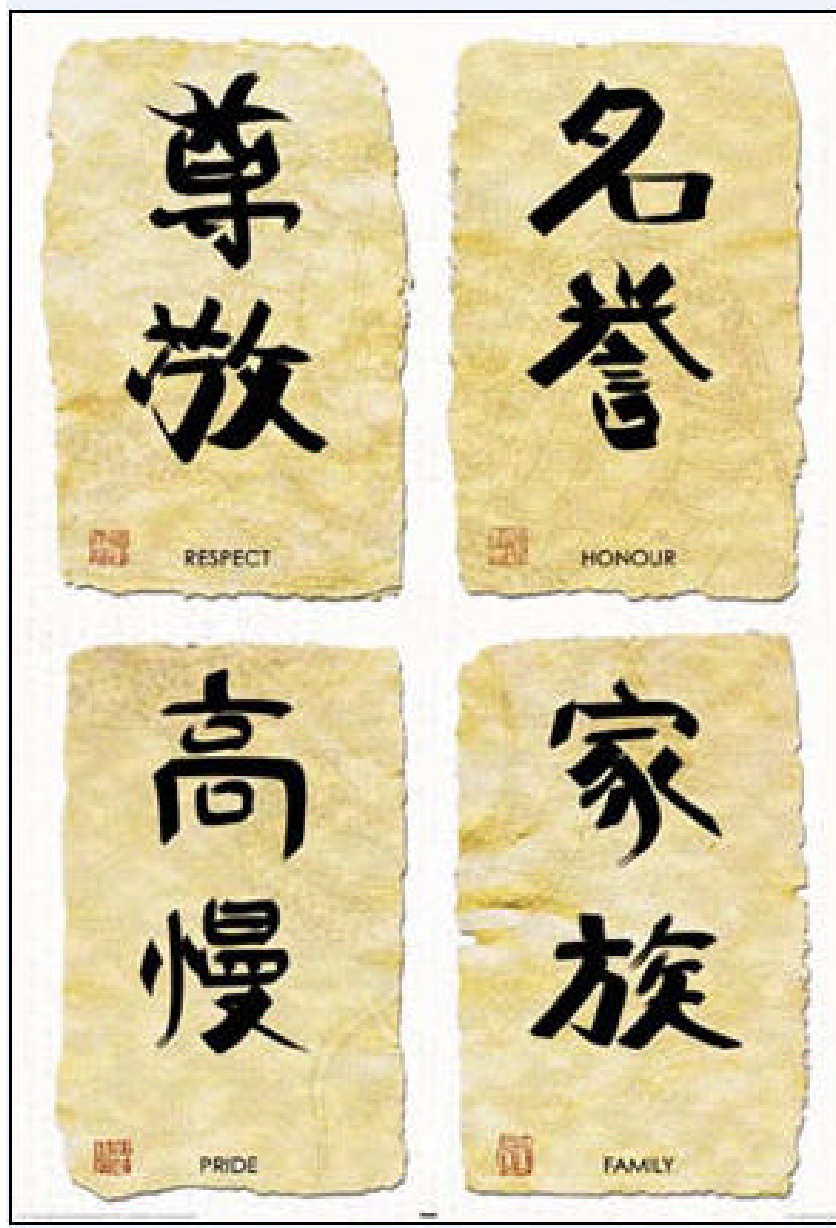 尊敬
RESPECT
名誉
HONOUR
高慢
PRIDE
家族
FAMILY